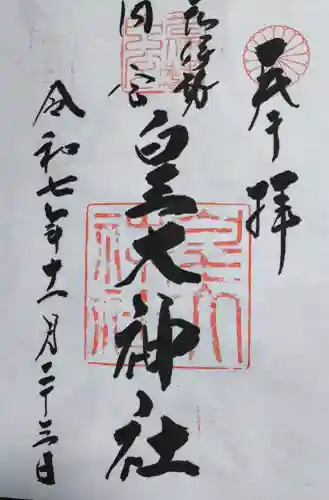 奉拝
元伊勢
内宮
皇大神社
皇大
神社
令和七年十一月二十三日